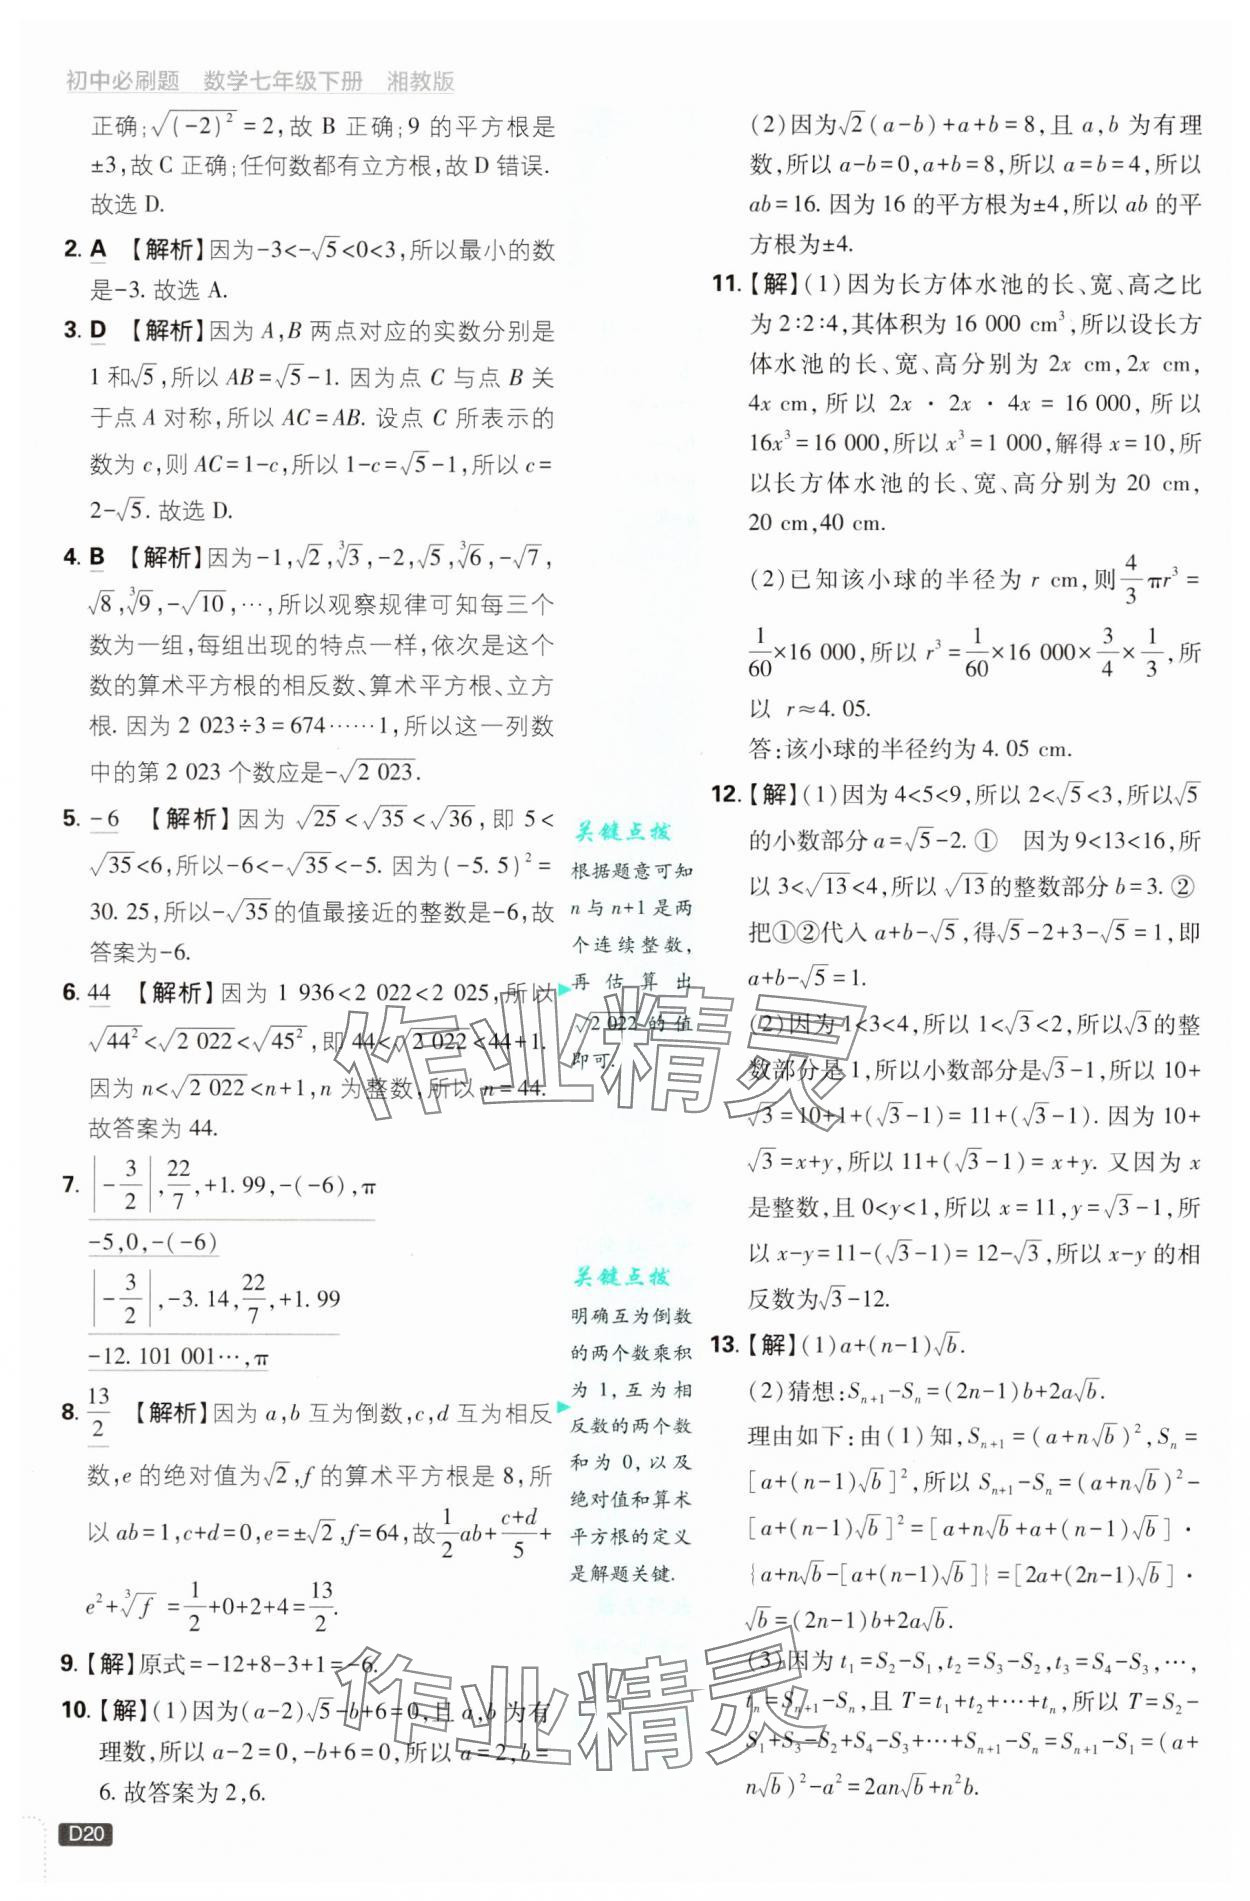 初中必刷题　数学七年级下册　湘教版
正确;√(-2)²=2,故 B 正确;9 的平方根是
±3,故 C 正确;任何数都有立方根,故 D 错误.
故选 D.
2. A 【解析】因为-3<-√5<0<3,所以最小的数
是-3. 故选 A.
3. D 【解析】因为 A,B 两点对应的实数分别是
1 和√5,所以 AB=√5-1. 因为点 C 与点 B 关
于点 A 对称,所以 AC=AB. 设点 C 所表示的
数为 c,则 AC=1-c,所以 1-c=√5-1,所以 c=
2-√5. 故选 D.
4. B 【解析】因为-1,√2,∛3,-2,√5,∛6,-√7,
√8,∛9,-√10,…,所以观察规律可知每三个
数为一组,每组出现的特点一样,依次是这个
数的算术平方根的相反数、算术平方根、立方
根. 因为 2 023÷3=674……1,所以这一列数
中的第 2 023 个数应是-√2 023.
5. -6 【解析】因为 √25<√35<√36,即 5<
√35<6,所以-6<-√35<-5. 因为(-5.5)²=
30.25,所以-√35的值最接近的整数是-6,故
答案为-6.
6. 44 【解析】因为 1 936<2 022<2 025,所以
√44²<√2 022<√45²,即 44<√2 022<44+1.
因为 n<√2 022<n+1,n 为整数,所以 n=44.
故答案为 44.
7. |-3/2|,22/7,+1.99,-(-6),π
-5,0,-(-6)
|-3/2|,-3.14,22/7,+1.99
-12.101 001…,π
8. 13/2 【解析】因为 a,b 互为倒数,c,d 互为相反
数,e 的绝对值为√2,f 的算术平方根是 8,所
以 ab=1,c+d=0,e=±√2,f=64,故1/2ab+(c+d)/5+
e²+∛f=1/2+0+2+4=13/2.
9.【解】原式=-12+8-3+1=-6.
10.【解】(1)因为(a-2)√5-b+6=0,且 a,b 为有
理数,所以 a-2=0,-b+6=0,所以 a=2,b=
6. 故答案为 2,6.
D20
关键点拨
根据题意可知
n 与 n+1 是两
个连续整数,
再估算出
√2 022 的值
即可.
关键点拨
明确互为倒数
的两个数乘积
为 1,互为相
反数的两个数
和为 0,以及
绝对值和算术
平方根的定义
是解题关键.
(2)因为√2(a-b)+a+b=8,且 a,b 为有理
数,所以 a-b=0,a+b=8,所以 a=b=4,所以
ab=16. 因为 16 的平方根为±4,所以 ab 的平
方根为±4.
11.【解】(1)因为长方体水池的长、宽、高之比
为 2∶2∶4,其体积为 16 000 cm³,所以设长方
体水池的长、宽、高分别为 2x cm,2x cm,
4x cm,所以 2x · 2x · 4x = 16 000,所以
16x³=16 000,所以 x³=1 000,解得 x=10,所
以长方体水池的长、宽、高分别为 20 cm,
20 cm,40 cm.
(2)已知该小球的半径为 r cm,则4/3πr³=
1/60×16 000,所以 r³=1/60×16 000×3/4×1/3,所
以 r≈4.05.
答:该小球的半径约为 4.05 cm.
12.【解】(1)因为 4<5<9,所以 2<√5<3,所以√5
的小数部分 a=√5-2. ① 因为 9<13<16,所
以 3<√13<4,所以 √13的整数部分 b=3. ②
把①②代入 a+b-√5,得√5-2+3-√5=1,即
a+b-√5=1.
(2)因为 1<3<4,所以 1<√3<2,所以√3的整
数部分是 1,所以小数部分是√3-1,所以 10+
√3=10+1+(√3-1)=11+(√3-1). 因为 10+
√3=x+y,所以 11+(√3-1)=x+y. 又因为 x
是整数,且 0<y<1,所以 x=11,y=√3-1,所
以 x-y=11-(√3-1)=12-√3,所以 x-y 的相
反数为√3-12.
13.【解】(1)a+(n-1)√b.
(2)猜想:Sₙ₊₁-Sₙ=(2n-1)b+2a√b.
理由如下:由(1)知,Sₙ₊₁=(a+n√b)²,Sₙ=
[a+(n-1)√b]²,所以 Sₙ₊₁-Sₙ=(a+n√b)²-
[a+(n-1)√b]²=[a+n√b+a+(n-1)√b]·
{a+n√b-[a+(n-1)√b]}=[2a+(2n-1)√b]·
√b=(2n-1)b+2a√b.
(3)因为 t₁=S₂-S₁,t₂=S₃-S₂,t₃=S₄-S₃,…,
tₙ=Sₙ₊₁-Sₙ,且 T=t₁+t₂+…+tₙ,所以 T=S₂-
S₁+S₃-S₂+S₄-S₃+…+Sₙ₊₁-Sₙ=Sₙ₊₁-S₁=(a+
n√b)²-a²=2an√b+n²b.
作业精灵
作业精灵